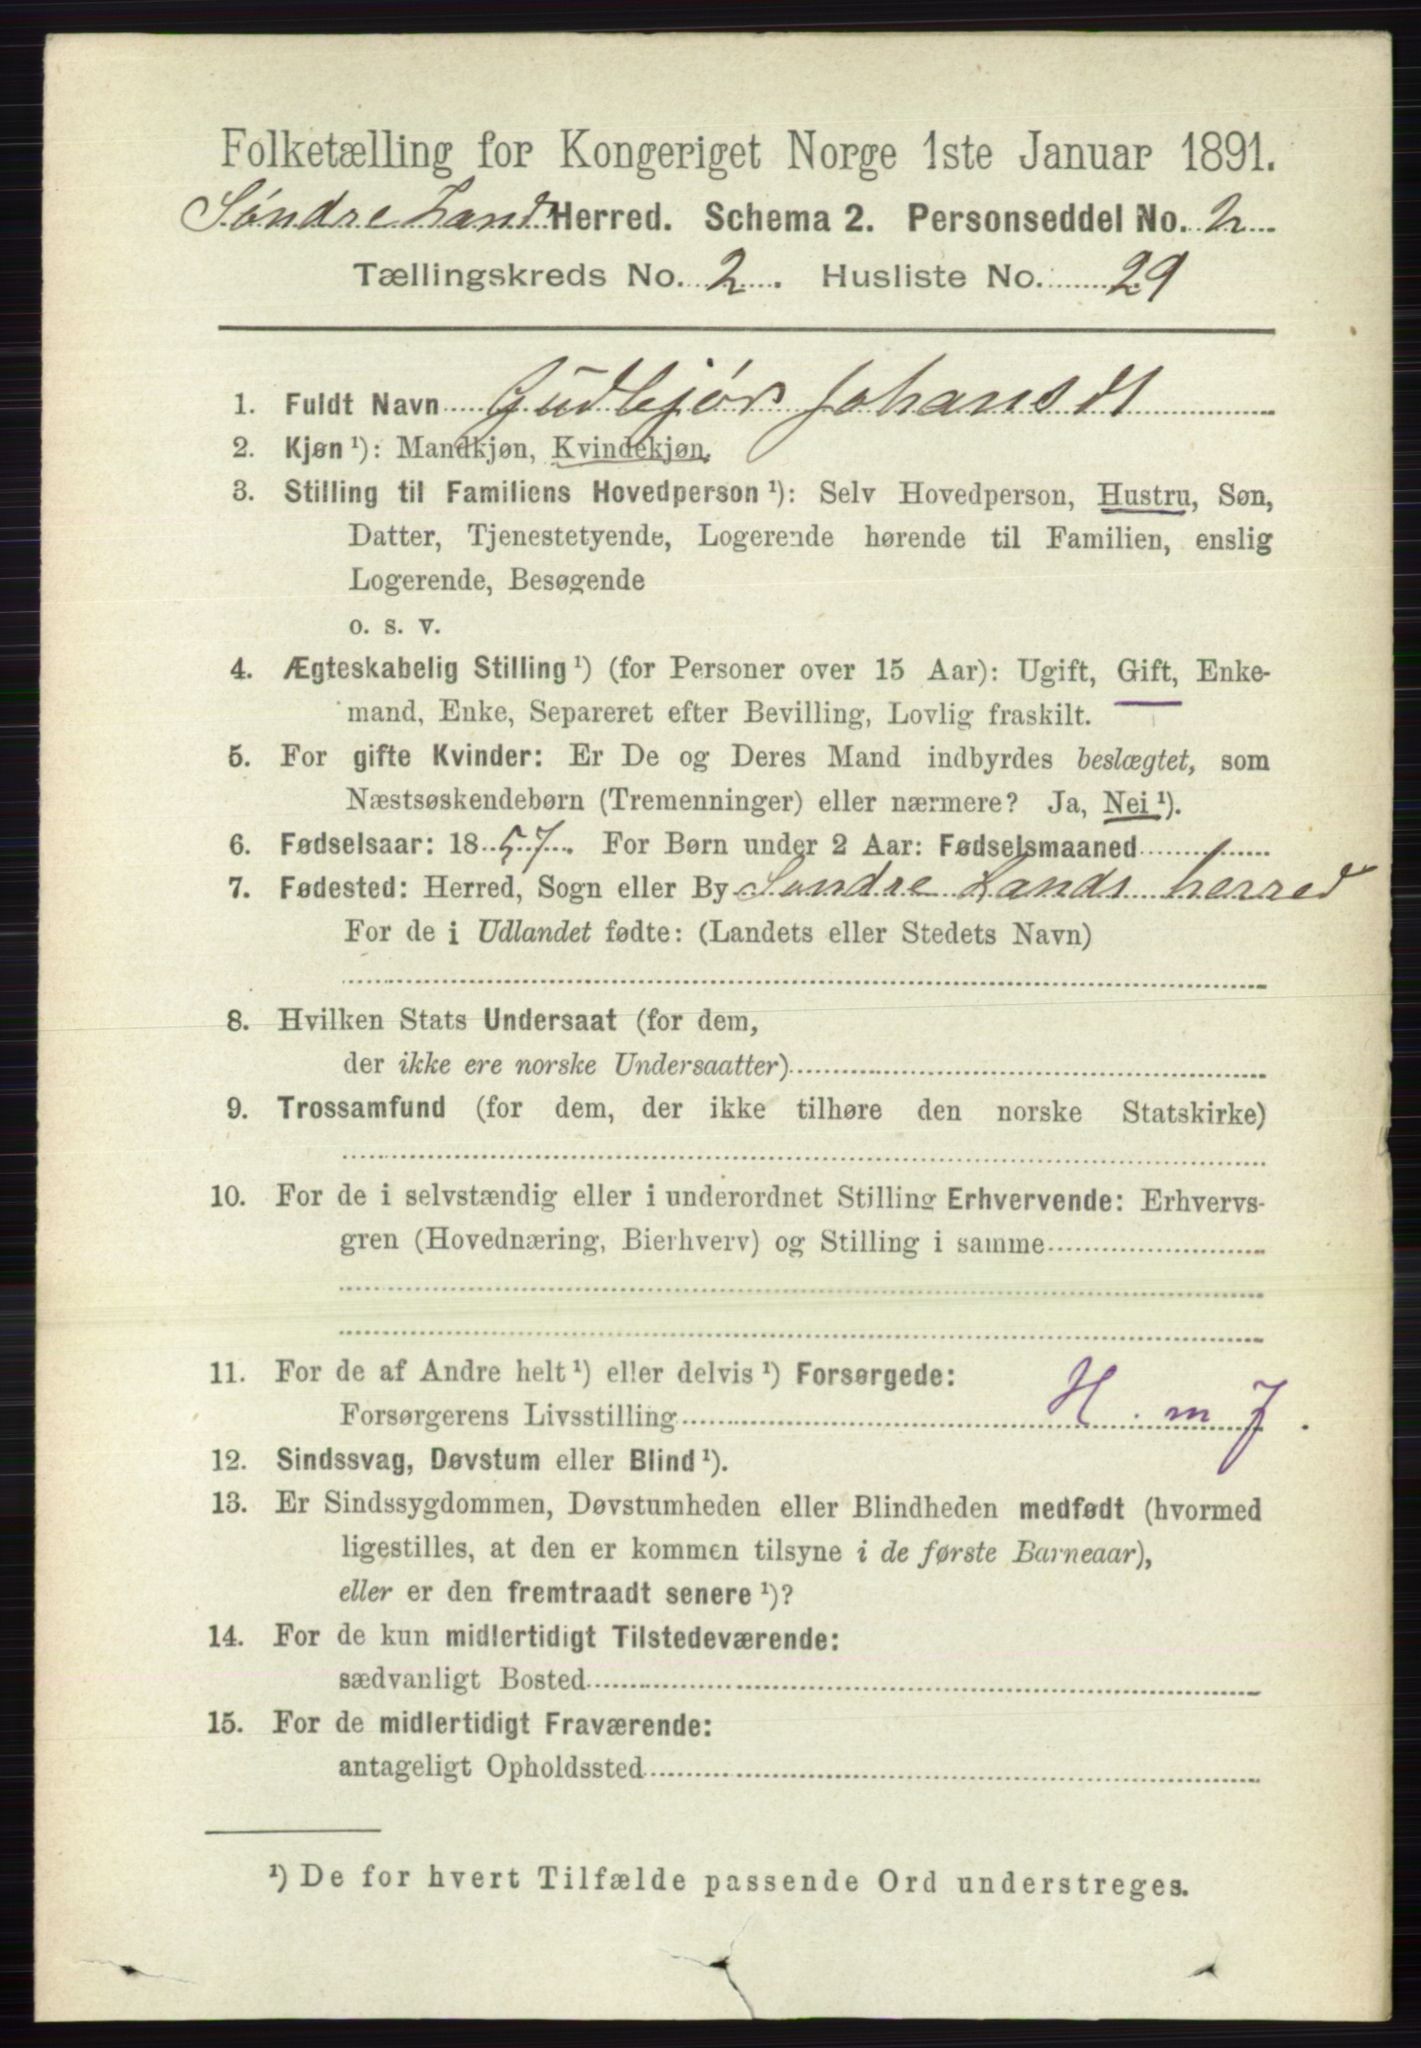 Folketælling for Kongeriget Norge 1ste Januar 1891.
Søndre Land Herred. Schema 2. Personseddel No. 2
Tællingskreds No. 2. Husliste No. 29
1. Fuldt Navn Gudbjør Johansdt
2. Kjøn ¹): Mandkjøn, Kvindekjøn.
3. Stilling til Familiens Hovedperson ¹): Selv Hovedperson, Hustru, Søn,
Datter, Tjenestetyende, Logerende hørende til Familien, enslig
Logerende, Besøgende
o. s. v.
4. Ægteskabelig Stilling ¹) (for Personer over 15 Aar): Ugift, Gift, Enke-
mand, Enke, Separeret efter Bevilling, Lovlig fraskilt.
5. For gifte Kvinder: Er De og Deres Mand indbyrdes beslægtet, som
Næstsøskendebørn (Tremenninger) eller nærmere? Ja, Nei ¹).
6. Fødselsaar: 1857. For Børn under 2 Aar: Fødselsmaaned
7. Fødested: Herred, Sogn eller By Søndre Lands herred
For de i Udlandet fødte: (Landets eller Stedets Navn)
8. Hvilken Stats Undersaat (for dem,
der ikke ere norske Undersaatter)
9. Trossamfund (for dem, der ikke tilhøre den norske Statskirke)
10. For de i selvstændig eller i underordnet Stilling Erhvervende: Erhvervs-
gren (Hovednæring, Bierhverv) og Stilling i samme
11. For de af Andre helt ¹) eller delvis ¹) Forsørgede:
Forsørgerens Livsstilling H. m J.
12. Sindssvag, Døvstum eller Blind ¹).
13. Er Sindssygdommen, Døvstumheden eller Blindheden medfødt (hvormed
ligestilles, at den er kommen tilsyne i de første Barneaar),
eller er den fremtraadt senere ¹)?
14. For de kun midlertidigt Tilstedeværende:
sædvanligt Bosted
15. For de midlertidigt Fraværende:
antageligt Opholdssted
¹) De for hvert Tilfælde passende Ord understreges.